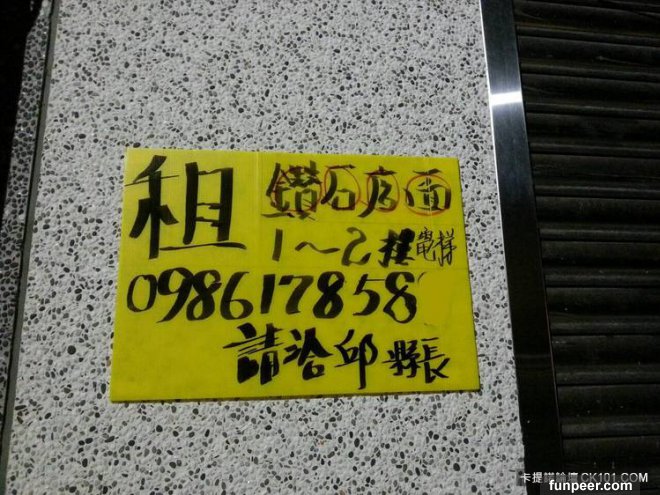 租 鑽石店面
1～2 樓電梯
098617858
請洽邱縣長
卡提諾論壇 CK101.COM
funpeer.com